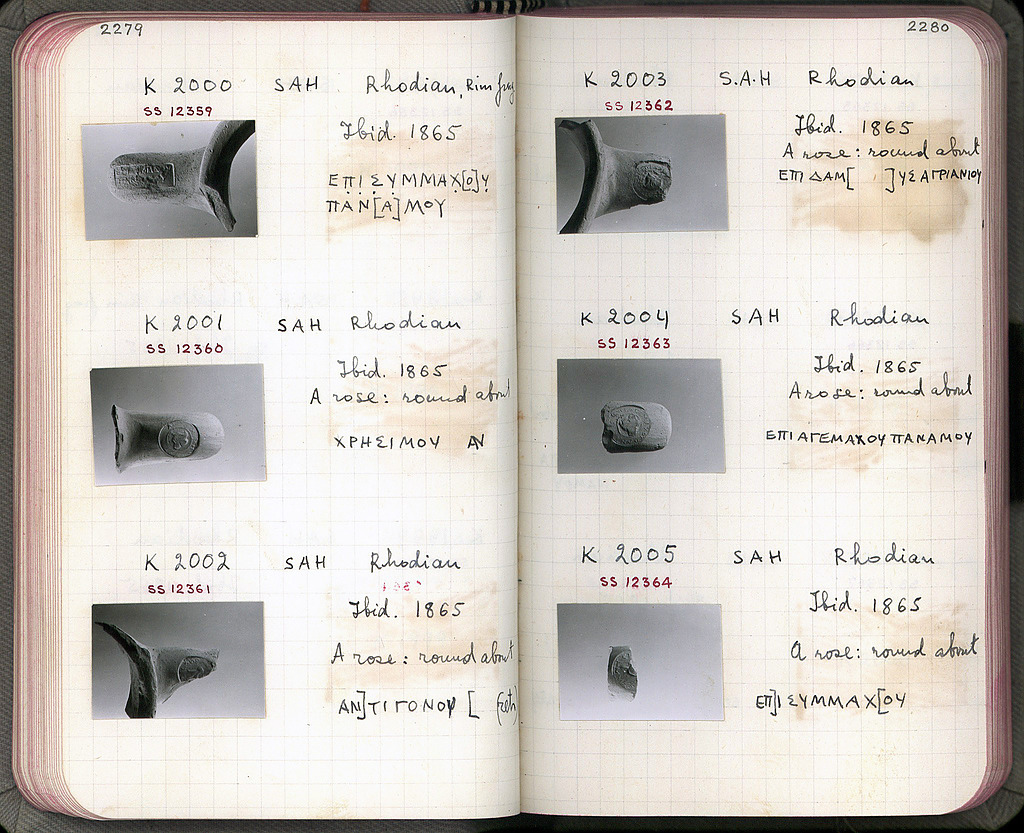 2279
K 2000 SAH Rhodian, Rim frag
SS 12359
Ibid. 1865
ΕΠΙ ΣΥΜΜΑΧ[Ο]Υ
ΠΑΝ[Α]ΜΟΥ
K 2001 SAH Rhodian
SS 12360
Ibid. 1865
A rose: round about
ΧΡΗΣΙΜΟΥ
K 2002 SAH Rhodian
SS 12361
Ibid. 1865
A rose: round about
ΑΝ]ΤΙΓΟΝΟΥ [
2280
K 2003 S.A.H Rhodian
SS 12362
Ibid. 1865
A rose: round about
ΕΠΙ ΔΑΜ[ ]ΥΣ ΑΓΡΙΑΝΙΟΥ
K 2004 SAH Rhodian
SS 12363
Ibid. 1865
A rose: round about
ΕΠΙ ΑΓΕΜΑΧΟΥ ΠΑΝΑΜΟΥ
K 2005 SAH Rhodian
SS 12364
Ibid. 1865
A rose: round about
ΕΠ]Ι ΣΥΜΜΑΧ[ΟΥ